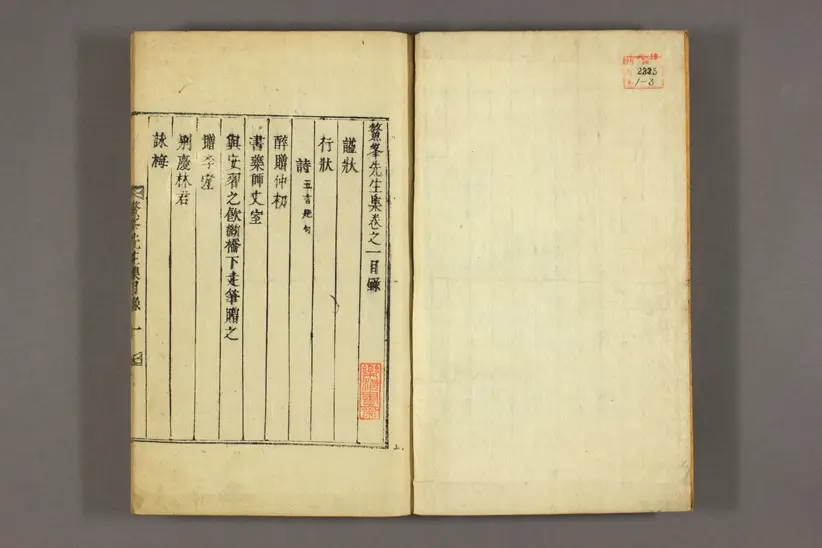 鰲峯先生集卷之一目錄
謚狀
行狀
詩 五言絶句
醉贈仲初
書藥師丈室
與安習之飮斷橋下走筆贈之
贈李
別慶林君
詠梅
鰲峯先生集目錄 一
2325
1-3